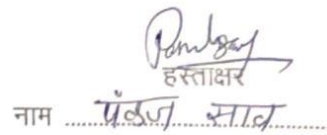 Pankaj
हस्ताक्षर
नाम पंकज साव